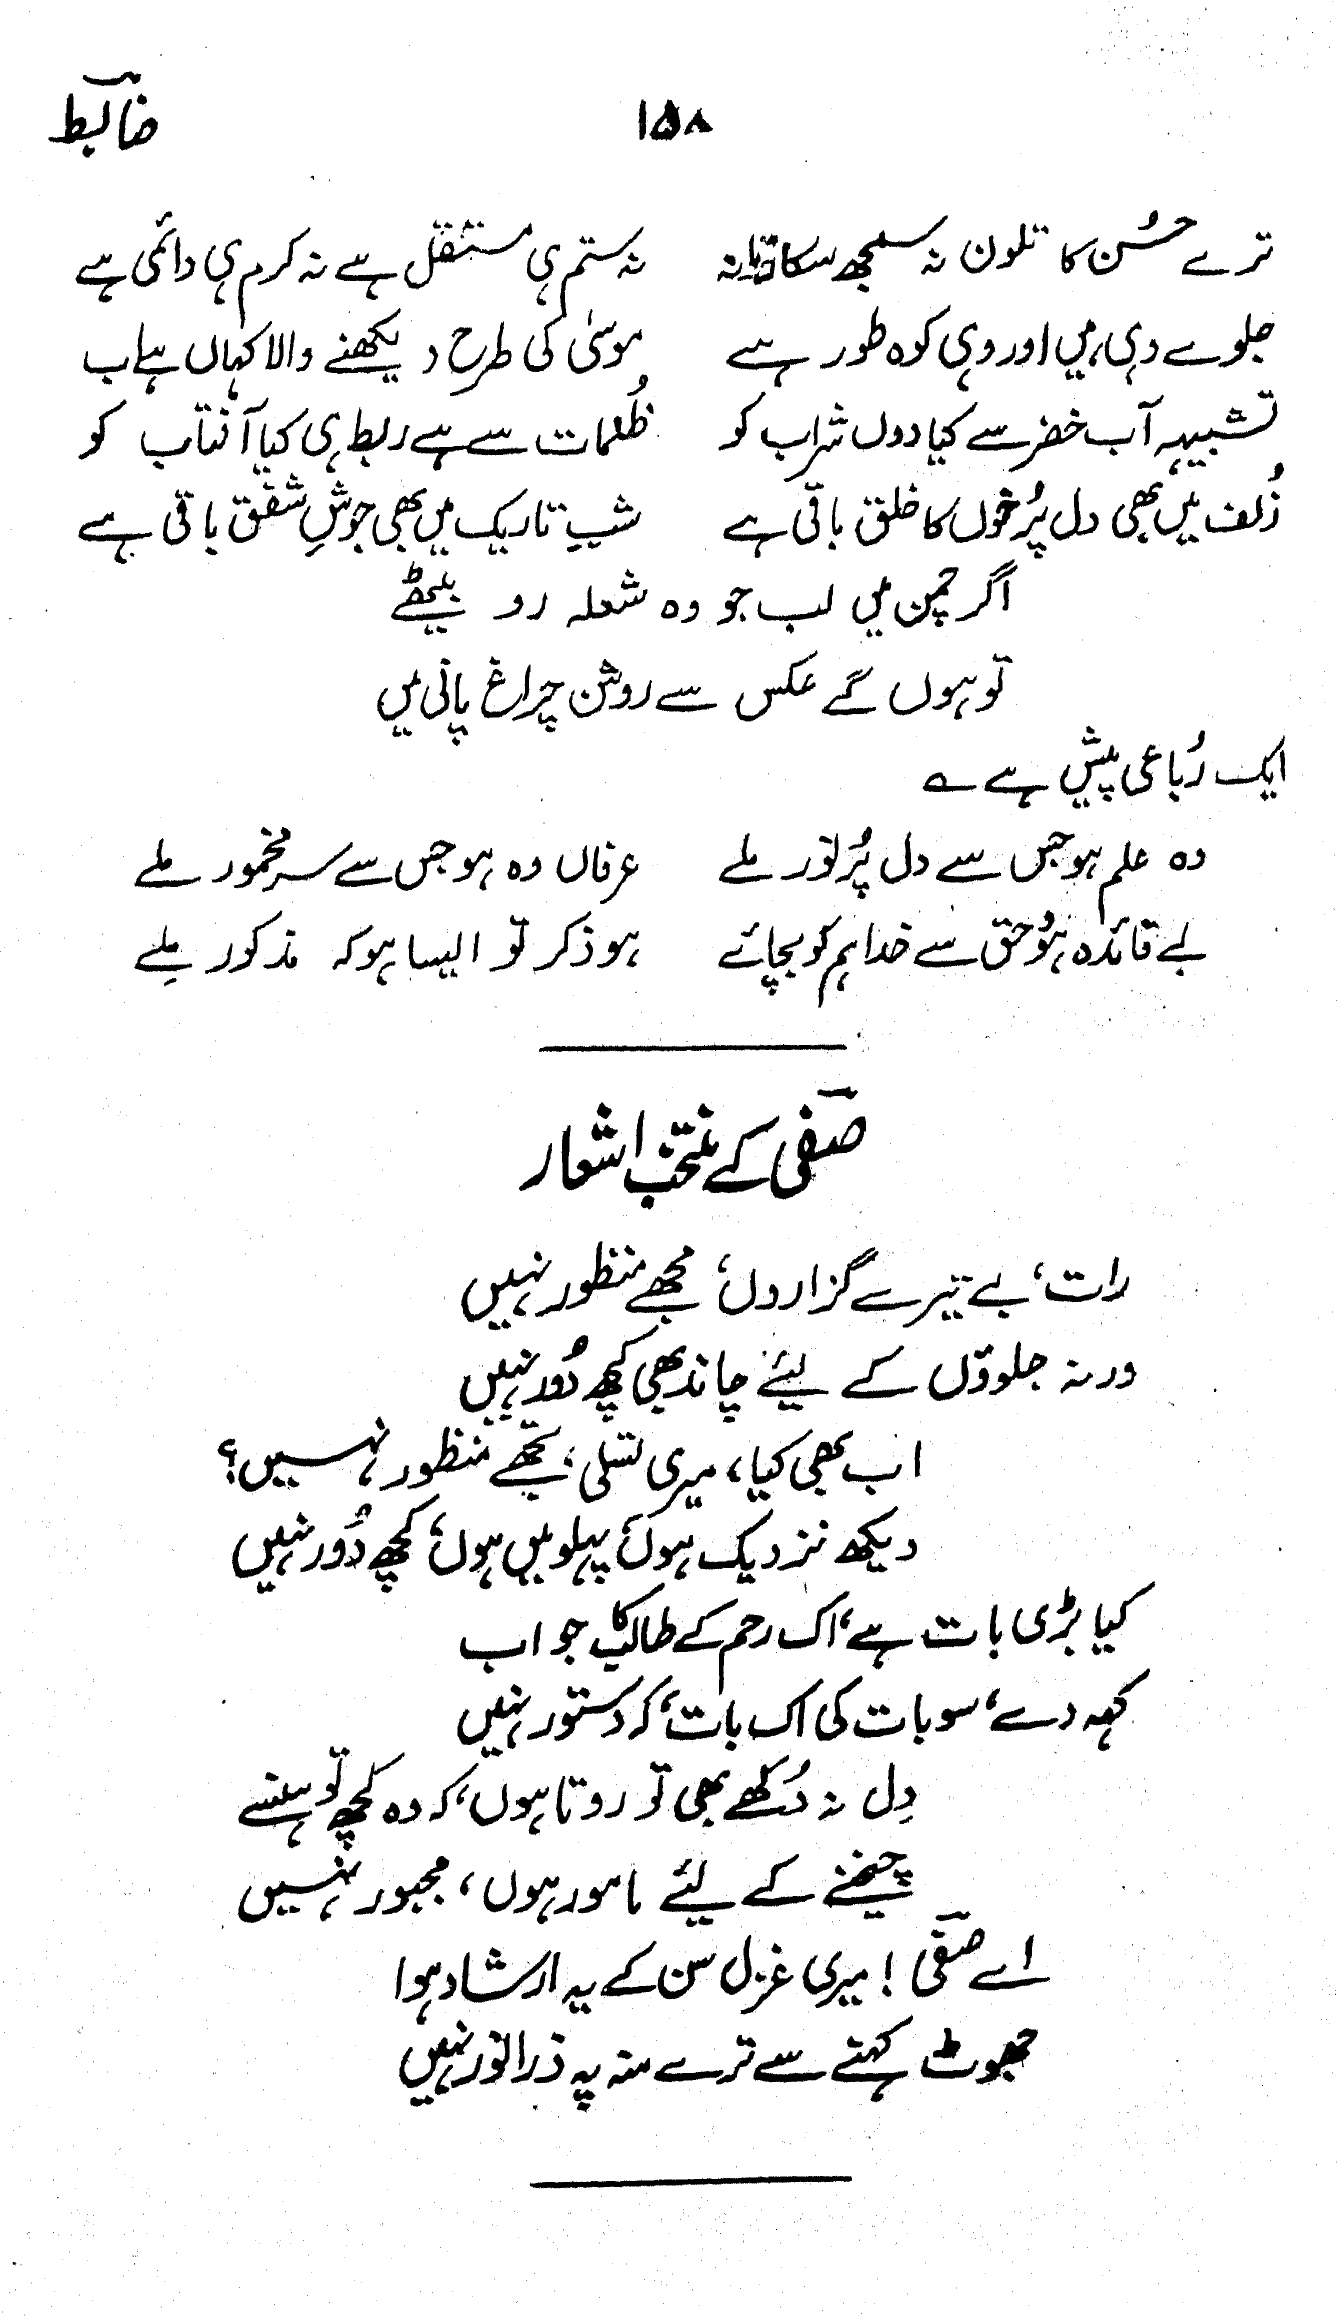 ۱۵۸ ضابطؔ
ترے حُسن کا تلون نہ سمجھ سکا زمانہ نہ ستم ہی مستقل ہے نہ کرم ہی دائمی ہے
جلوے وہی ہیں اور وہی کوہ طور ہے موسیٰ کی طرح دیکھنے والا کہاں ہے اب
تشبیہہ آب خضر سے کیا دوں شراب کو ظُلمات سے ہے ربط ہی کیا آفتاب کو
زُلف میں بھی دل پُر خوں کا خلق باقی ہے شبِ تاریک میں بھی جوشِ شفق باقی ہے
اگر چمن میں لب جو وہ شعلہ رو بیٹھے
تو ہوں گے عکس سے روشن چراغ پانی میں
ایک رُباعی پیش ہے ؎
وہ علم ہو جس سے دل پُر نور ملے عرفاں وہ ہو جس سے سر مخمور ملے
بے فائدہ ہُو حق سے خدا ہم کو بچائے ہو ذکر تو ایسا ہو کہ مذکور ملے
صفیؔ کے منتخب اشعار
رات، بے تیرے گزاروں، مجھے منظور نہیں
ورنہ جلووں کے لیئے چاند بھی کچھ دُور نہیں
اب بھی کیا، میری تسلی، تجھے منظور نہیں؟
دیکھ نزدیک ہوں، پہلو میں ہوں، کچھ دُور نہیں
کیا بڑی بات ہے، اک رحم کے طالب کا جواب
کہہ دے، سو بات کی اک بات، کہ دستور نہیں
دِل نہ دُکھے بھی تو روتا ہوں، کہ وہ کچھ تو ہنسے
چیخنے کے لیئے مامور ہوں، مجبور نہیں
اے صفیؔ ! میری غزل سن کے یہ ارشاد ہوا
جھوٹ کہنے سے ترے منہ پہ ذرا نور نہیں